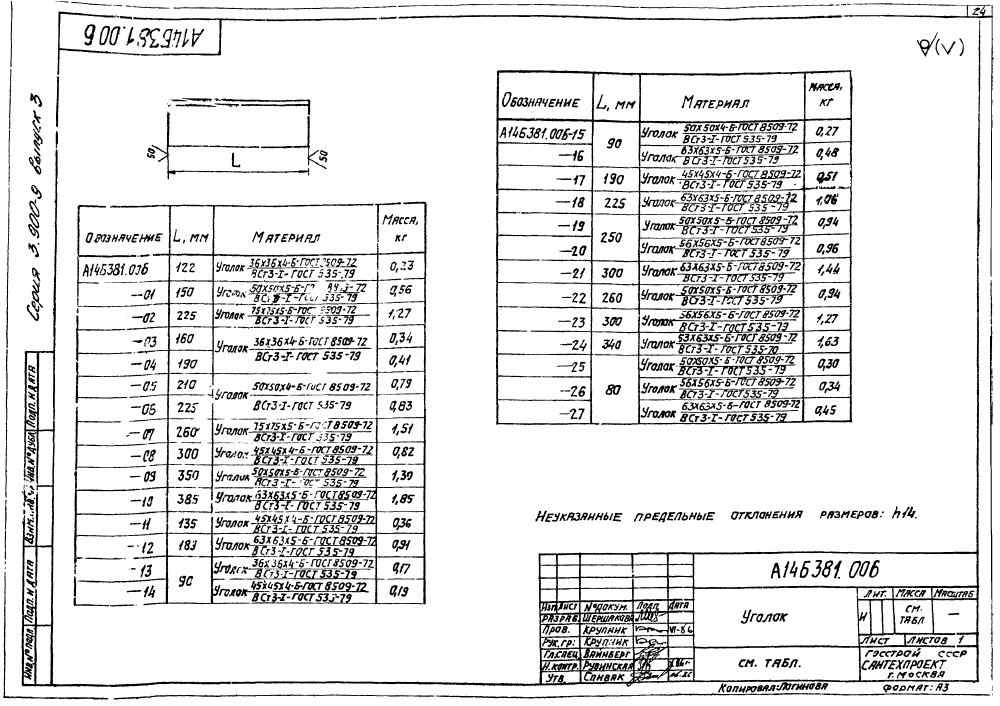 24
А14Б381.006
Серия 3.900-9 выпуск 3
50
L
50
(√)
Обозначение L, мм Материал Масса, кг
А14Б381.006 122 Уголок 36х36х4-Б-ГОСТ 8509-72 0,23
ВСт3-I-ГОСТ 535-79
—01 150 Уголок 50х50х5-Б- 0,56
ВСт3-I-ГОСТ 535-79
—02 225 Уголок 75х75х5-Б-ГОСТ 8509-72 1,27
ВСт3-I-ГОСТ 535-79
—03 160 Уголок 36х36х4-Б-ГОСТ 8509-72 0,34
—04 190 ВСт3-I-ГОСТ 535-79 0,41
—05 210 Уголок 50х50х4-Б-ГОСТ 8509-72 0,79
—06 225 ВСт3-I-ГОСТ 535-79 0,83
—07 260 Уголок 75х75х5-Б-ГОСТ 8509-72 1,51
ВСт3-I-ГОСТ 535-79
—08 300 Уголок 45х45х4-Б-ГОСТ 8509-72 0,82
ВСт3-I-ГОСТ 535-79
—09 350 Уголок 50х50х5-Б-ГОСТ 8509-72 1,30
ВСт3-I-ГОСТ 535-79
—10 385 Уголок 63х63х5-Б-ГОСТ 8509-72 1,85
ВСт3-I-ГОСТ 535-79
—11 135 Уголок 45х45х4-Б-ГОСТ 8509-72 0,36
ВСт3-I-ГОСТ 535-79
—12 183 Уголок 63х63х5-Б-ГОСТ 8509-72 0,91
ВСт3-I-ГОСТ 535-79
—13 90 Уголок 36х36х4-Б-ГОСТ 8509-72 0,17
ВСт3-I-ГОСТ 535-79
—14 Уголок 45х45х4-Б-ГОСТ 8509-72 0,19
ВСт3-I-ГОСТ 535-79
Обозначение L, мм Материал Масса, кг
А14Б381.006-15 90 Уголок 50х50х4-Б-ГОСТ 8509-72 0,27
ВСт3-I-ГОСТ 535-79
—16 Уголок 63х63х5-Б-ГОСТ 8509-72 0,48
ВСт3-I-ГОСТ 535-79
—17 190 Уголок 45х45х4-Б-ГОСТ 8509-72 0,51
ВСт3-I-ГОСТ 535-79
—18 225 Уголок 63х63х5-Б-ГОСТ 8509-72 1,06
ВСт3-I-ГОСТ 535-79
—19 250 Уголок 50х50х5-Б-ГОСТ 8509-72 0,94
ВСт3-I-ГОСТ 535-79
—20 Уголок 56х56х5-Б-ГОСТ 8509-72 0,96
ВСт3-I-ГОСТ 535-79
—21 300 Уголок 63х63х5-Б-ГОСТ 8509-72 1,44
ВСт3-I-ГОСТ 535-79
—22 260 Уголок 50х50х5-Б-ГОСТ 8509-72 0,94
ВСт3-I-ГОСТ 535-79
—23 300 Уголок 56х56х5-Б-ГОСТ 8509-72 1,27
ВСт3-I-ГОСТ 535-79
—24 340 Уголок 63х63х5-Б-ГОСТ 8509-72 1,63
ВСт3-I-ГОСТ 535-79
—25 80 Уголок 50х50х5-Б-ГОСТ 8509-72 0,30
ВСт3-I-ГОСТ 535-79
—26 Уголок 56х56х5-Б-ГОСТ 8509-72 0,34
ВСт3-I-ГОСТ 535-79
—27 Уголок 63х63х5-Б-ГОСТ 8509-72 0,45
ВСт3-I-ГОСТ 535-79
Неуказанные предельные отклонения размеров: h14.
Инв.№ подл. Подп. и дата Взам.инв.№ Инв.№ дубл. Подп. и дата
А14Б381.006
Изм. Лист № докум. Подп. Дата
Разраб. Шершакова
Пров. Крупник VI-86
Рук.гр. Крупник
Гл.спец. Вайнберг
Н.контр. Рувинская
Утв. Спивак
Уголок
См. табл.
Лит. Масса Масштаб
И См. табл —
Лист Листов 1
Госстрой СССР
Сантехпроект
г. Москва
Копировал: Логинова Формат: А3